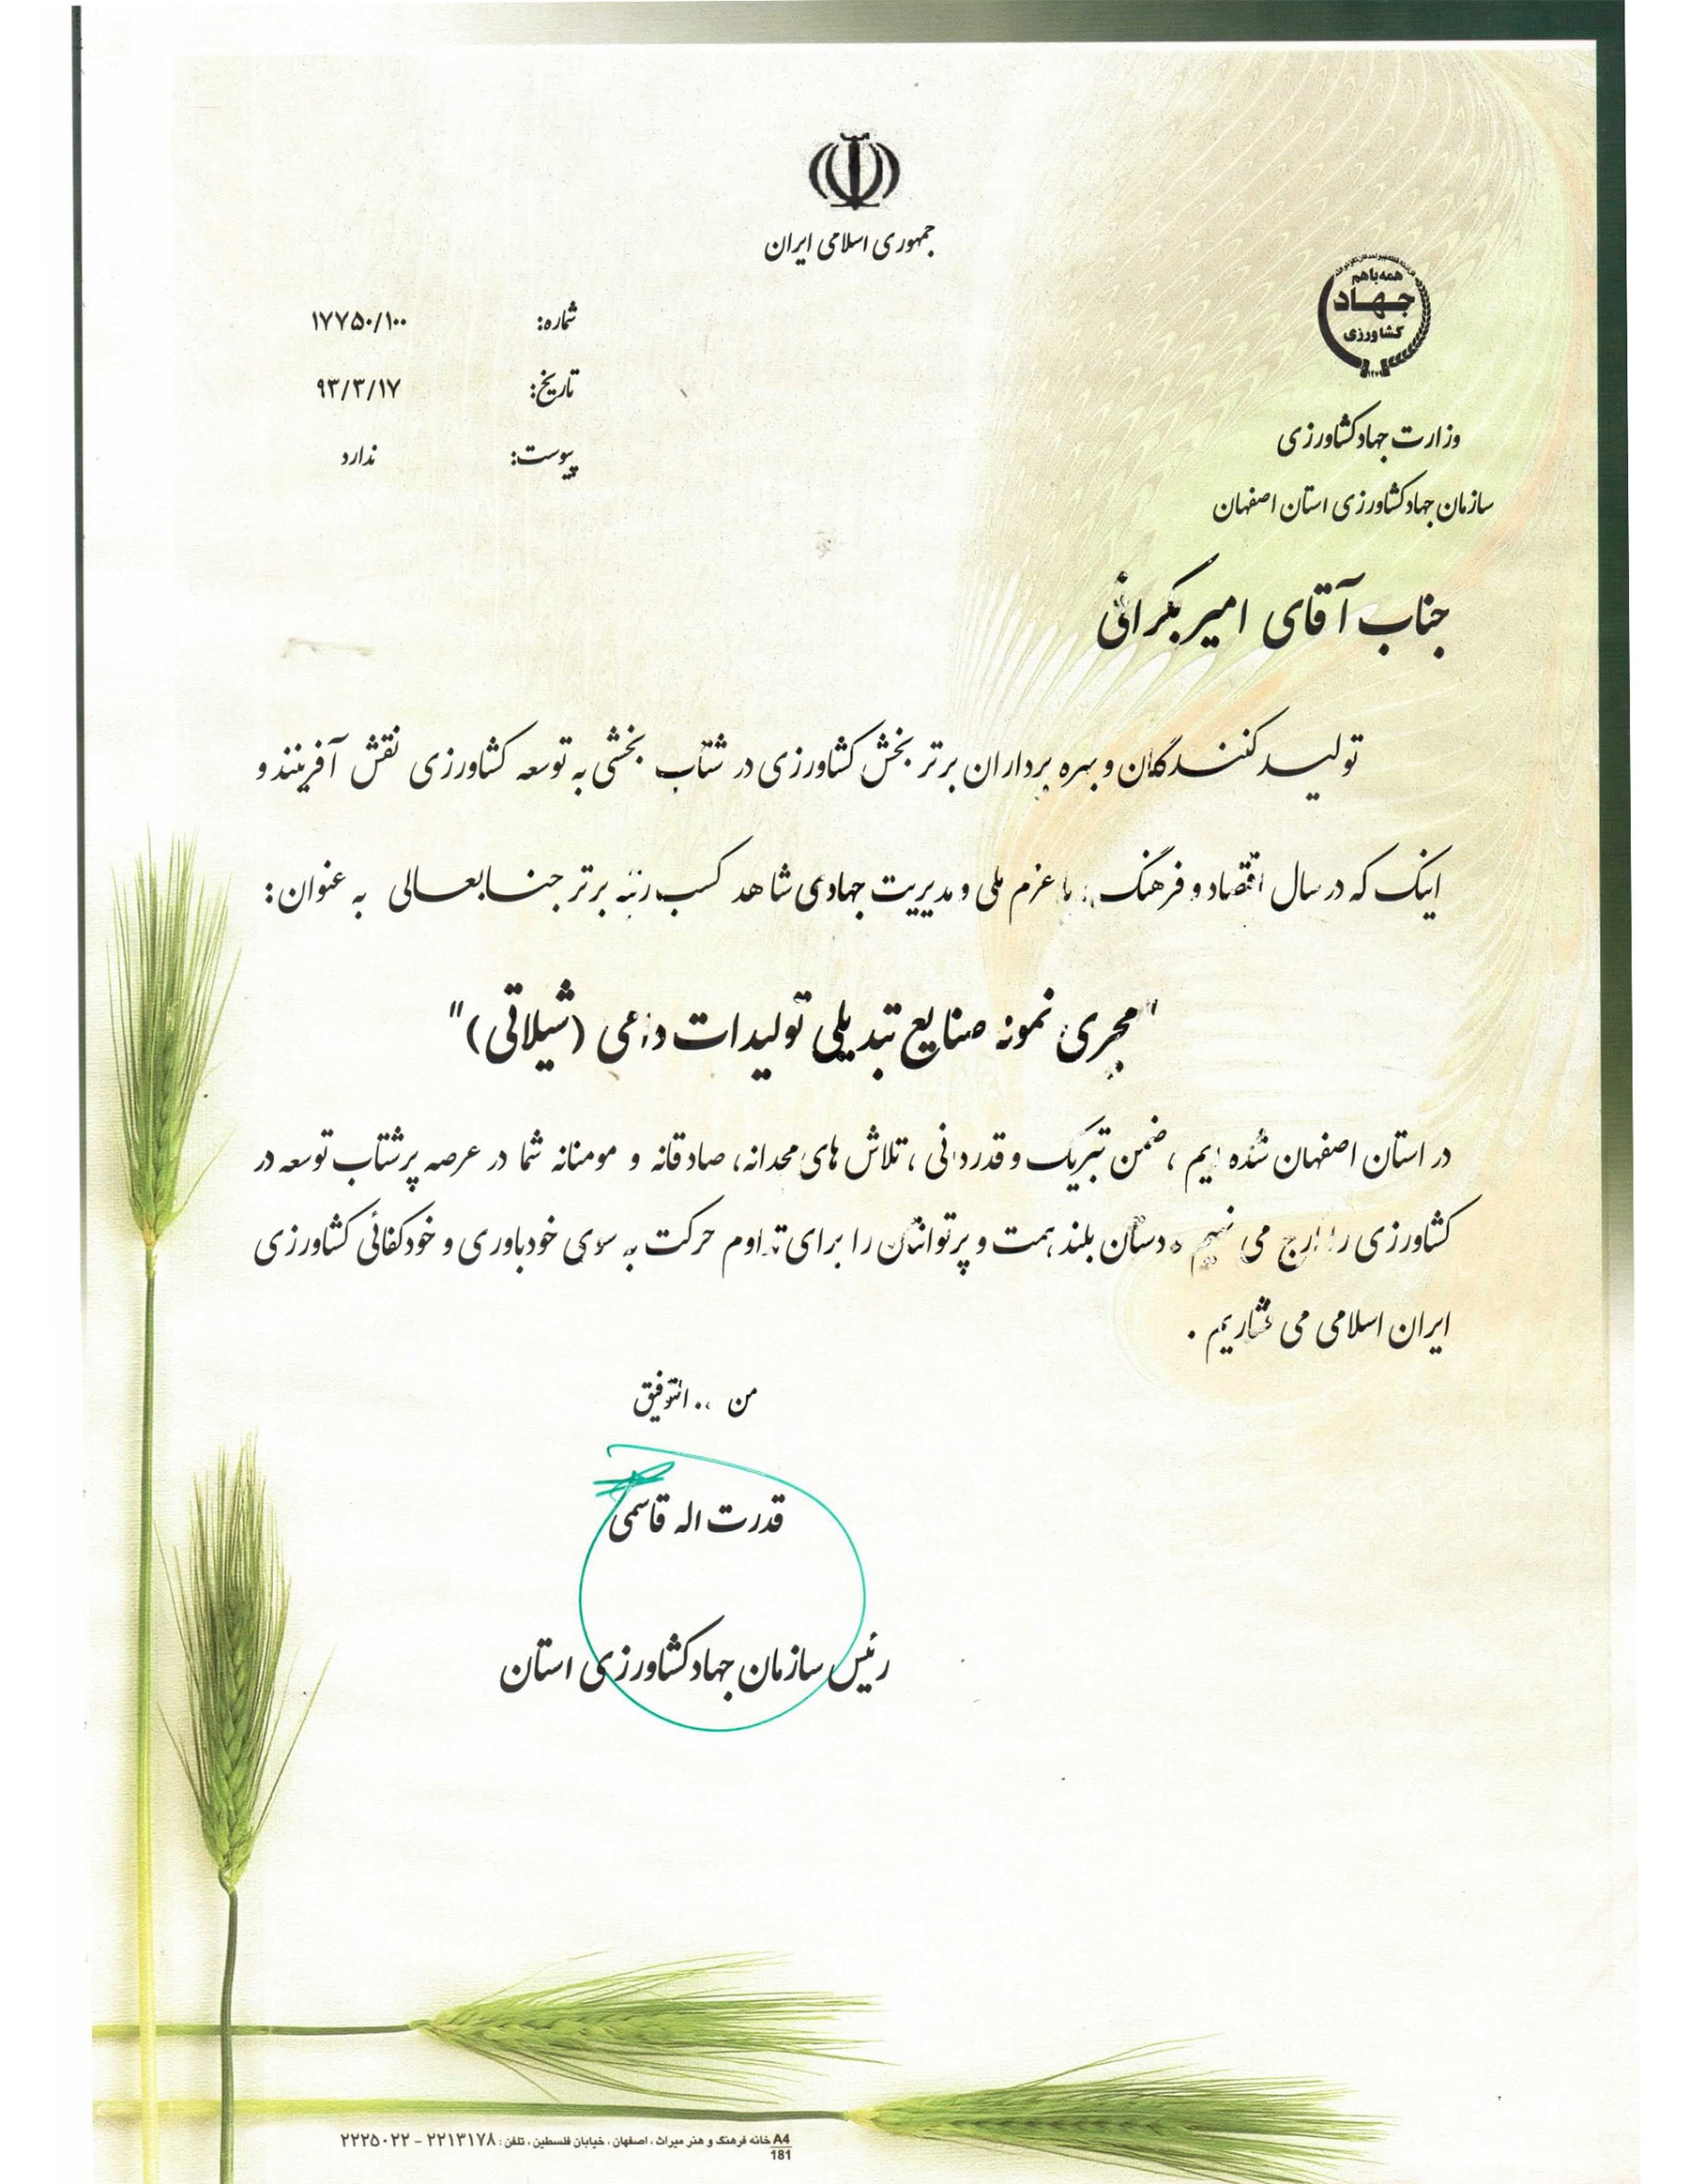 جمهوری اسلامی ایران
همه با هم
جهاد
کشاورزی
وزارت جهاد کشاورزی
سازمان جهاد کشاورزی استان اصفهان
شماره: ۱۷۷۵۰/۱۰۰
تاریخ: ۹۳/۳/۱۷
پیوست: ندارد
جناب آقای امیر بکرانی
تولید کنندگان و بهره برداران برتر بخش کشاورزی در شتاب بخشی به توسعه کشاورزی نقش آفرینند و
اینک که در سال اقتصاد و فرهنگ با عزم ملی و مدیریت جهادی شاهد کسب رتبه برتر جنابعالی به عنوان:
"مجری نمونه صنایع تبدیلی تولیدات دامی (شیلاتی)"
در استان اصفهان شده ایم ، ضمن تبریک و قدردانی ، تلاش های مجدانه، صادقانه و مومنانه شما در عرصه پرشتاب توسعه در
کشاورزی را ارج می نهیم دستان بلند همت و پرتوانتان را برای تداوم حرکت به سوی خودباوری و خودکفائی کشاورزی
ایران اسلامی می فشاریم .
من ا... التوفیق
قدرت اله قاسمی
رئیس سازمان جهاد کشاورزی استان
A4 خانه فرهنگ و هنر میراث ، اصفهان ، خیابان فلسطین ، تلفن : ۲۲۱۳۱۷۸ - ۲۲۲۵۰۲۲
181